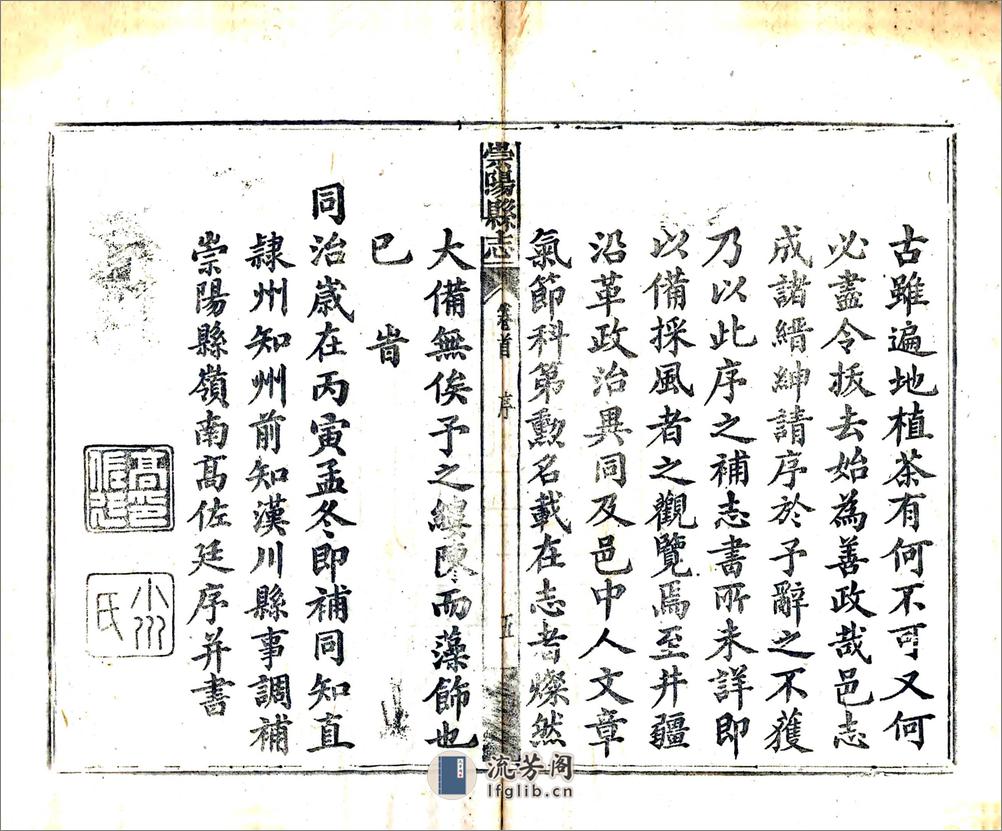 古雖遍地植茶有何不可又何
必盡令拔去始為善政哉邑志
成諸縉紳請序於予辭之不獲
乃以此序之補志書所未詳即
以備採風者之觀覽焉至井疆
沿革政治異同及邑中人文章
氣節科第勲名載在志者燦然
崇陽縣志
卷首
序
五
大備無俟予之縷陳而藻飾也
已 旹
同治歲在丙寅孟冬即補同知直
隸州知州前知漢川縣事調補
崇陽縣嶺南髙佐廷序并書
小州
氏
流芳阁
lfglib.cn